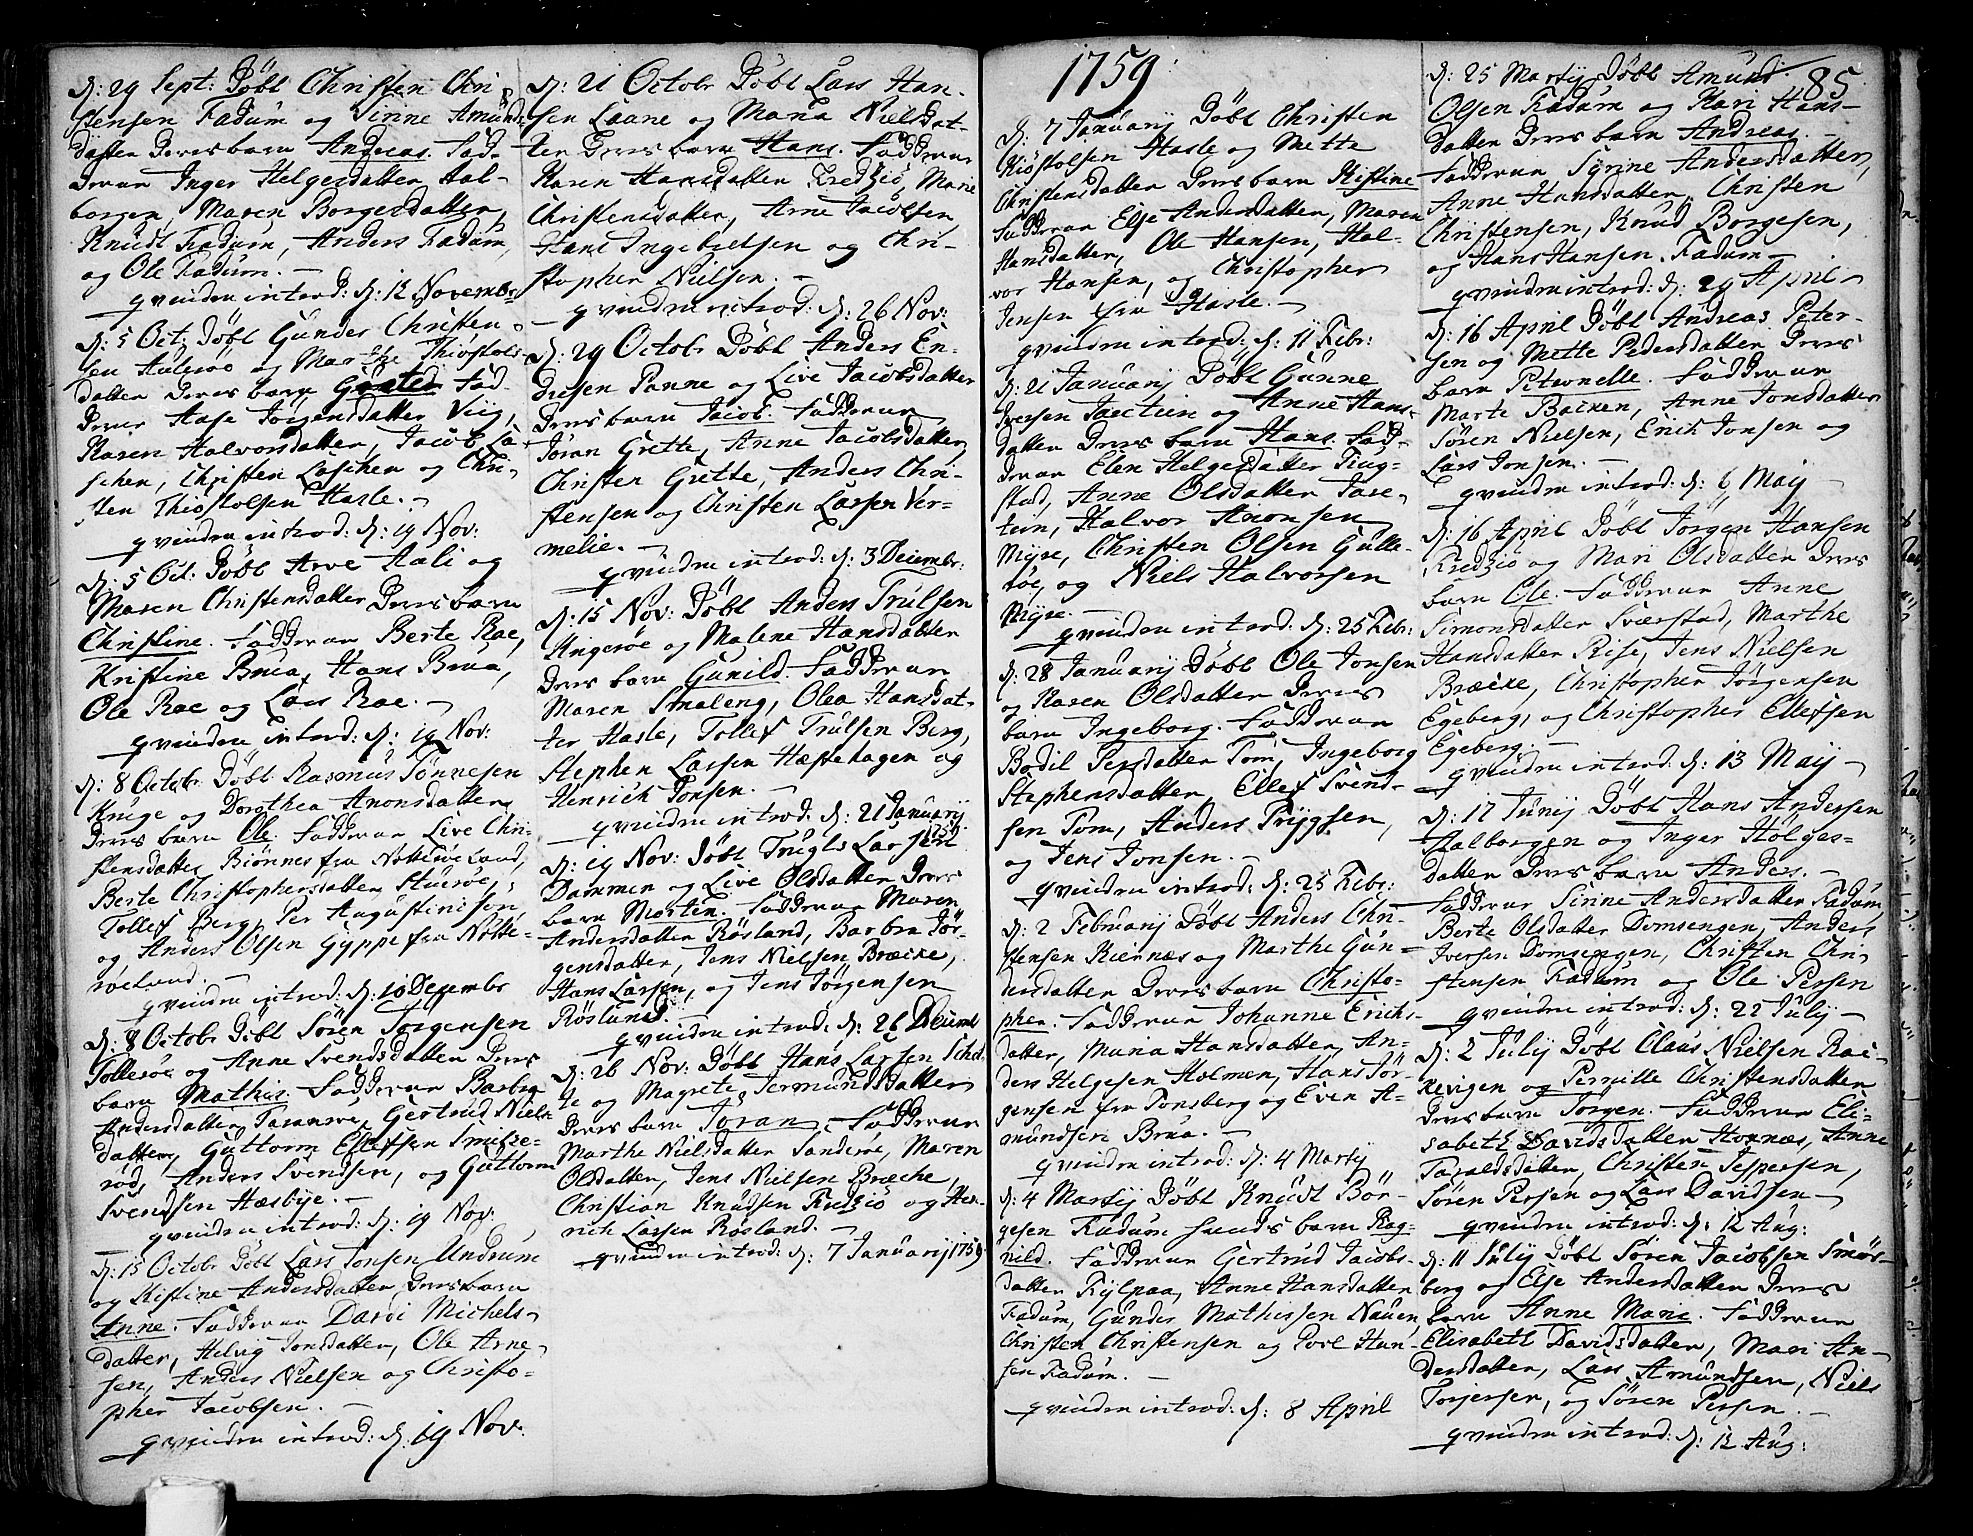 d: 29 Sept: Döbt Christen Chri-
stensen Fadum og Sirine Amunds
datter deres barn Andreas. Fad-
derne Inger Helgesdatter Aal-
borgen, Maren Borgesdatter,
Knudt Fadum, Anders Fadum,
og Ole Fadum. -
qvinden introd: d: 12 Novembr
d: 5 Oct: Döbt Gunder Christen-
sen Hulesöe og Marthe Thiöstols
datter deres barn Fad-
derne Aase Jörgensdatter Viig,
Karen Halvorsdatter, Jacob La-
schen, Christen Laschen og Chri-
sten Thiöstolsen Hasle. -
qvinden introd: d: 19 Nov:
d: 5 Oct: Döbt Arve Aali og
Maren Christensdatter deres barn
Christine. Fadderne Berte Rae,
Kristine Brua, Hans Brua,
Ole Rae og Lars Rae. -
qvinden introd: d: 19 Nov:
d: 8 Octobr Döbt Rasmus Tönnesen
Kruge og Dorothea Anonsdatter
deres barn Ole. Fadderne Live Chri-
stensdatter Biönnes fra Nötteröe Land,
Berte Christophersdatter
Tollef Berg, Per Augustinisön,
og Anders Olsen Gyppe fra Nötte-
röeland. -
qvinden introd: d: 10 Decembr
d: 8 Octobr Döbt Sören Jörgensen
Tolleröe og Anne Svendsdatter deres
barn Mathis. Fadderne Barbra
Andersdatter Gertrud Niels
datter, Guttorm Ellefsen Smitze-
röd, Anders Svendsen, og Guttorm
Svendsen Hæsbye. -
qvinden introd: d: 19 Nov:
d: 15 Octobr Döbt Lars Jonsen Undrum
og Kistine Andersdatter deres barn
Anne. Fadderne Dardi Michels-
datter, Helvig Jonsdatter, Ole Arne-
sen, Anders Nielsen og Christo-
pher Jacobsen. -
qvinden introd: d: 19 Nov:
d: 21 Octobr Döbt Lars Han-
sen Laane og Maria Nielsdat-
ter deres barn Hans. Fadderne
Karen Hansdatter Fredziö, Marie
Christensdatter, Arne Jacobsen,
Hans Ingebretsen og Chri-
stopher Nielsen. -
qvinden introd: d: 26 Nov:
d: 29 Octobr Döbt Anders En-
dresen Panne og Live Jacobsdatter
deres barn Jacob. Fadderne
Jöran Grette, Anne Jacobsdatter,
Christen Grette, Anders Chri-
stensen og Christen Larsen Ver-
melie. -
qvinden introd: d: 3 Decembr:
d: 15 Nov: Döbt Anders Trulsen
Ringeröe og Malene Hansdatter
deres barn Gunild. Fadderne
Maren Smaleng, Olea Hansdat-
ter Hasle, Tollef Trulsen Berg,
Stephen Larsen Hæstehagen og
Henrich Jonsen. -
qvinden introd: d: 21 Januarij
1759
d: 19 Nov: Döbt Trugls Larsen
Dammen og Live Olsdatter deres
barn Morten. Fadderne Maren
Andersdatter Rösland, Barbra Jör-
gensdatter, Jens Nielsen Bræcke,
Hans Larsen, og Jens Jörgensen
Rösland. -
qvinden introd: d: 26 Decemb
d: 26 Nov: Döbt Hans Larsen
te og Magrete Jermundsdatter
deres barn Jöran. Fadderne
Marthe Nielsdatter Sanderöe, Maren
Olsdatter, Jens Nielsen Bræche,
Christian Knudsen Fredziö og Hen-
rich Larsen Rösland. -
qvinden introd: d: 7 Januarij 1759.
1759
d: 7 Januarij Döbt Christen
Thiöstolsen Hasle og Mette
Christensdatter deres barn Kistine
Fadderne Elje Andersdatter, Maren
Hansdatter, Ole Hansen, Hal-
vor Hansen, og Christopher
Jensen fra Hasle. -
qvinden introd: d: 11 Febr:
d: 21 Januarij Döbt Gunne
Iversen Jarctein og Anne Hans-
datter deres barn Hans. Fad-
derne Elen Helgesdatter Tiug-
stad, Anne Olsdatter Jare-
tein, Halvor Anonsen
Myre, Christen Olsen Gulle-
röe, og Niels Halvorsen
Myre. -
qvinden introd: d: 25 Febr:
d: 28 Januarij Döbt Ole Jonsen
og Karen Olsdatter deres
barn Ingeborg. Fadderne
Bodil Persdatter Tom, Ingeborg
Stephensdatter, Ellef Svend-
sen Tom, Anders Trygsen,
og Jens Jonsen. -
qvinden introd: d: 25 Febr:
d: 2 Februarij Döbt Anders Chri-
stensen Kiernæs og Marthe Gun-
dersdatter deres barn Christo-
pher. Fadderne Johanne Erichs-
datter, Maria Hansdatter, An-
ders Helgesen Holmen, Hans Jör-
gensen fra Tonsberg og Even A-
mundsen Brua. -
qvinden introd: d: 4 Martij
d: 4 Martij Döbt Knudt Bör-
gesen Fadum hends barn Rag-
nild. Fadderne Gertrud Jacobs-
datter Fylpaa, Anne Hansdatter
Fadum, Gunder Mathissen Nauen,
Christen Christensen og Povl Han-
sen Fadum. -
qvinden introd: d: 8 April
85
d: 25 Martij Döbt Amund
Olsen Fadum og Kari Hans-
datter deres barn Andreas. -
Fadderne Syrine Andersdatter,
Anne Hansdatter, Christen
Christensen, Knud Borgesen,
og Hans Hansen Fadum -
qvinden introd: d: 29 April -
d: 16 April Döbt Andreas Peter-
sen og Mette Pedersdatter deres
barn Peternelle. Fadderne
Marte Backen, Anne Jonsdatter
Sören Nielsen, Erich Jonsen og
Lars Jonsen. -
qvinden introd: d: 6 Maij -
d: 16 April Döbt Jörgen Hansen
Fredziö og Mari Olsdatter deres
barn Ole. Fadderne Anne
Simonsdatter Sværstad, Marthe
Hansdatter Rise, Jens Nielsen
Bræcke, Christopher Jörgensen
Egeberg, og Christopher Ellefsen
Egeberg. -
qvinden introd: d: 13 Maij -
d: 17 Junij Döbt Hans Andersen
Aalborgen og Inger Holges-
datter deres barn Anders. -
Fadderne Sirine Andersdatter Fadum,
Berte Olsdatter Domsengen, Anders
Iversen Domsengen, Christen Chri-
stensen Fadum og Ole Persen
qvinden introd: d: 22 Julij -
d: 2 Julij Döbt Claus Nielsen Rac-
kevigen og Pernille Christensdatter
deres barn Jörgen. Fadderne Eli-
sabeth Davidsdatter Hornæs, Anne
Taraldsdatter, Christen Jespersen,
Sören Persen og Lars Davidsen -
qvinden introd: d: 12 Aug:
d: 11 Julij Döbt Sören Jacobsen Smörs-
berg og Elje Andersdatter deres
barn Anne Marie. Fadderne
Elisabeth Davidsdatter, Mari An-
dersdatter, Lars Amundsen, Niels
Torjersen, og Sören Persen. -
qvinden introd: d: 12 Aug: